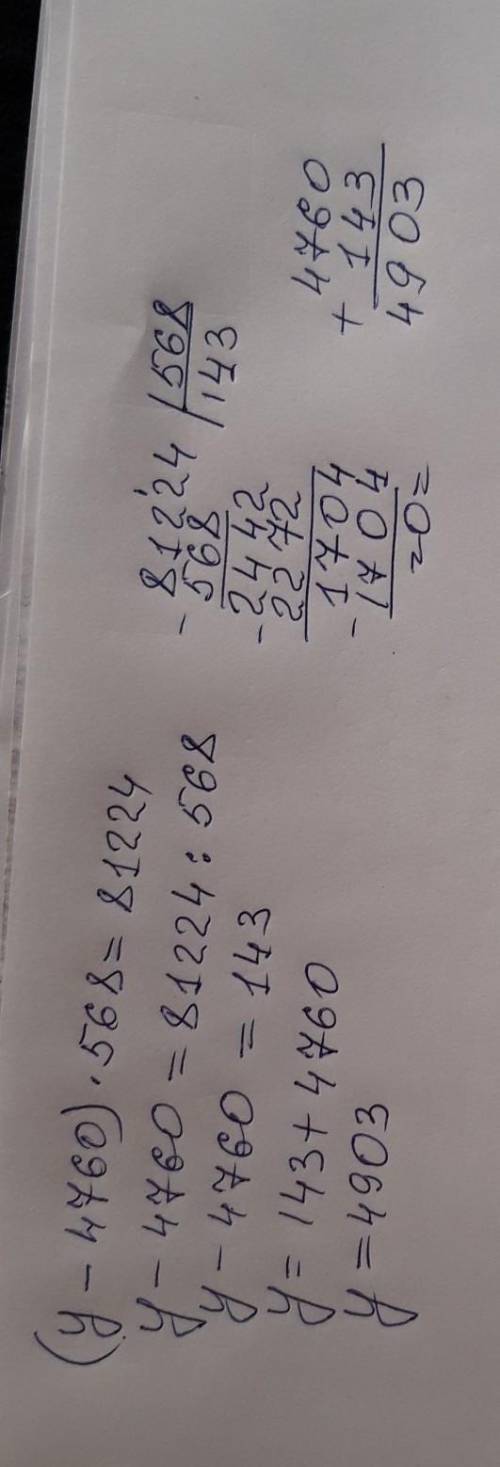 (y - 4760) · 568 = 81224
y - 4760 = 81224 : 568
y - 4760 = 143
y = 143 + 4760
y = 4903
- 81224 | 568
568 | 143
- 2442
2272
- 1704
1704
=0=
+ 4760
143
4903